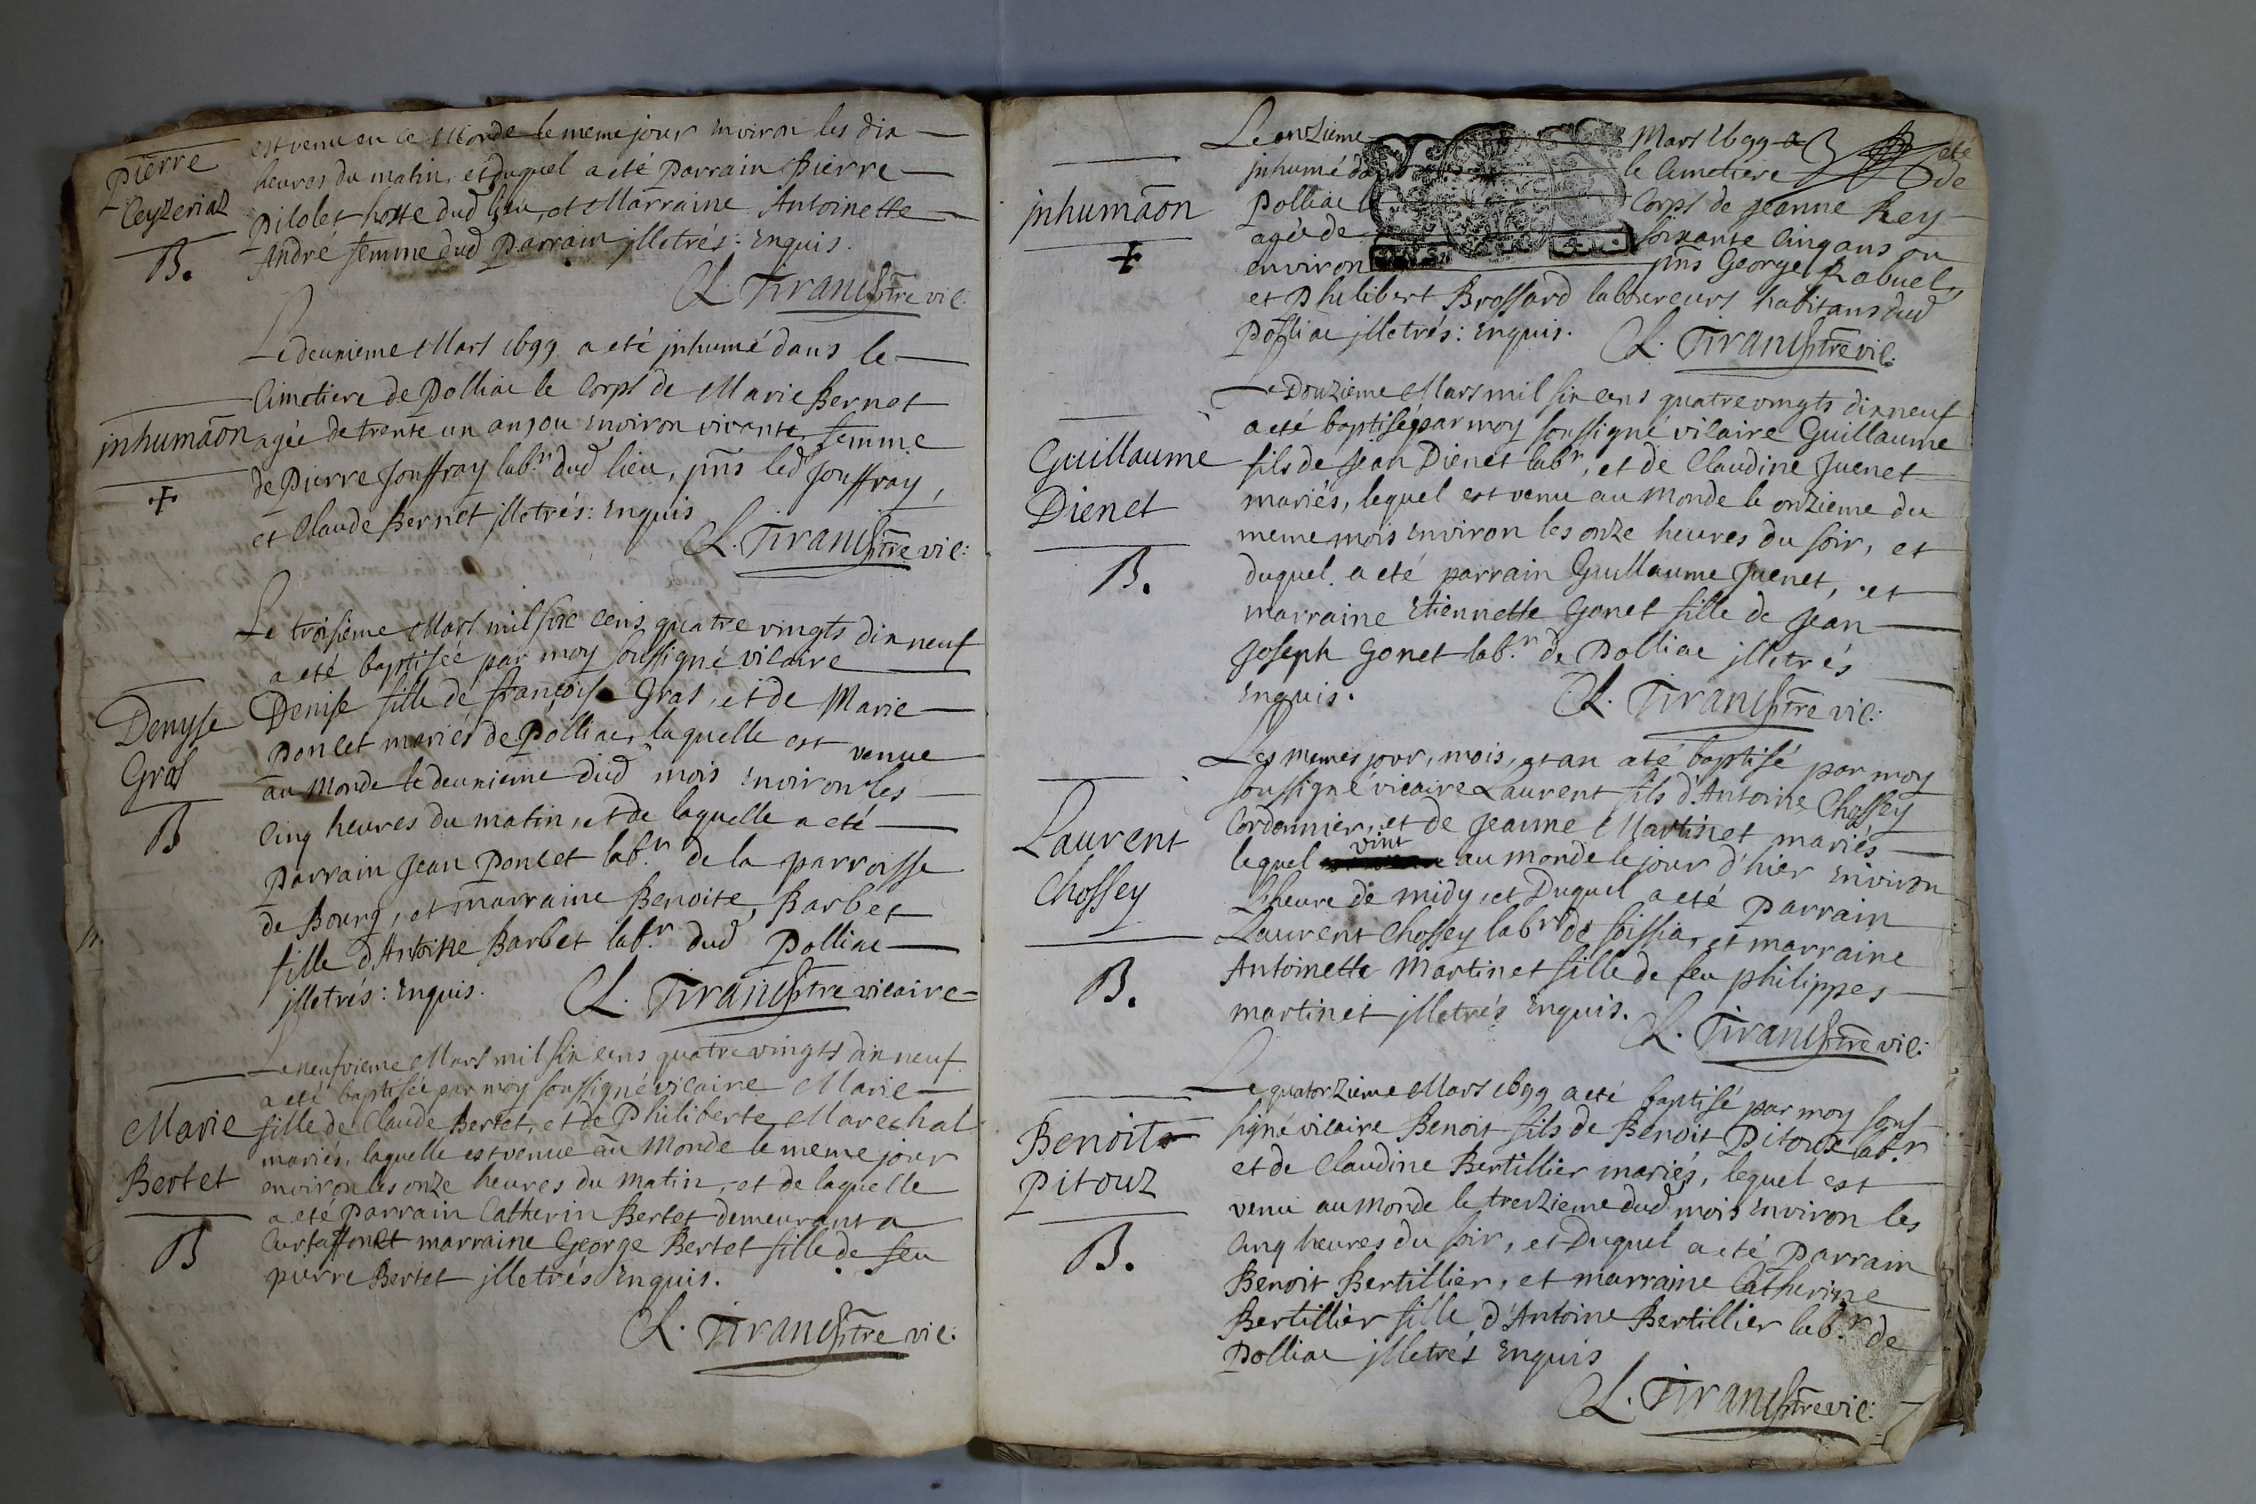 Pierre
Ceyzeriaz
B.
est venu en ce Monde le meme jour Environ les dix
heures du matin, et duquel a eté Parrain Pierre
Pilolet hoste dud lieu, et Marraine Antoinette
André femme dud Parrain illetrés: Enquis.
Cl. Tirand ptre vic:
Le deuxieme Mars 1699 a eté jnhumé dans le
Cimetiere de Polliac le Corps de Marie Bernet
jnhumãon
agée de trente un ans ou Environ vivante femme
de Pierre Jouffray labr. dud lieu, pñs led Jouffray,
et Claude Bernet jlletrés: Enquis
Cl. Tirand ptre vic:
Le troisieme Mars mil six cens quatre vingts dix neuf
a eté baptisée par moy soussigné vicaire
Denyse
Gras
B
Denise fille de françois Gras, et de Marie
Poncet mariés de Polliac, laquelle est venue
au Monde le deuxieme dud mois Environ les
Cinq heures du matin, et de laquelle a eté
Parrain Jean Poncet labr. de la parroisse
de Bourg, et marraine Benoite Barbet
fille d'Antoine Barbet labr. dud Polliac
jlletrés: Enquis.
Cl. Tirand ptre vicaire
Le neufvieme Mars mil six cens quatre vingts dix neuf
a eté baptisée par moy soussigné vicaire Marie
Marie
Bertet
B
fille de Claude Bertet, et de Philiberte Marechal
mariés, laquelle est venue au Monde le meme jour
environ les onze heures du matin, et de laquelle
a eté Parrain Catherin Bertet demeurant a
Curtaffon et marraine George Bertet fille de feu
pierre Bertet jlletrés Enquis.
Cl. Tirand ptre vic:
Le onzieme Mars 1699 a eté
jnhumé dans le Cimetiere de
jnhumãon
Polliac le Corps de Jeanne Rey
agée de soixante Cinq ans ou
environ pñs George Rabuel,
et Philibert Brossard laboureurs habitans dud
Polliac jlletrés: Enquis.
Cl. Tirand ptre vic:
Le Douzieme Mars mil six cens quatre vingts dix neuf
a eté baptisé par moy soussigné vicaire Guillaume
Guillaume
Dienet
B.
fils de Jean Dienet labr, et de Claudine Juenet
mariés, lequel est venu au Monde le onzieme du
meme mois Environ les onze heures du soir, et
duquel a eté parrain Guillaume Juenet, et
marraine Etiennette Gonet fille de Jean
Joseph Gonet labr. de Polliac jlletrés
Enquis.
Cl. Tirand ptre vic:
Les memes jour, mois, et an a eté baptisé par moy
soussigné vicaire Laurent fils d'Antoine Chossey
Laurent
Chossey
B.
Cordonnier, et de Jeanne Martinet mariés
lequel vint au monde le jour d'hier Environ
l'heure de midy, et Duquel a eté Parrain
Laurent Chossey labr de soissia, et marraine
Antoinette Martinet fille de feu philippes
martinet jlletrés Enquis.
Cl. Tirand ptre vic:
Le quatorzieme Mars 1699 a eté baptisé par moy sous
Benoit
Pitouz
B.
signé vicaire Benoit fils de Benoit Pitouz labr
et de Claudine Bertillier mariés, lequel est
venu au monde le treizieme dud mois Environ les
Cinq heures du soir, et Duquel a eté Parrain
Benoit Bertillier, et marraine Catherine
Bertillier fille d'Antoine Bertillier labr. de
Polliac jlletrés Enquis
Cl. Tirand ptre vic: